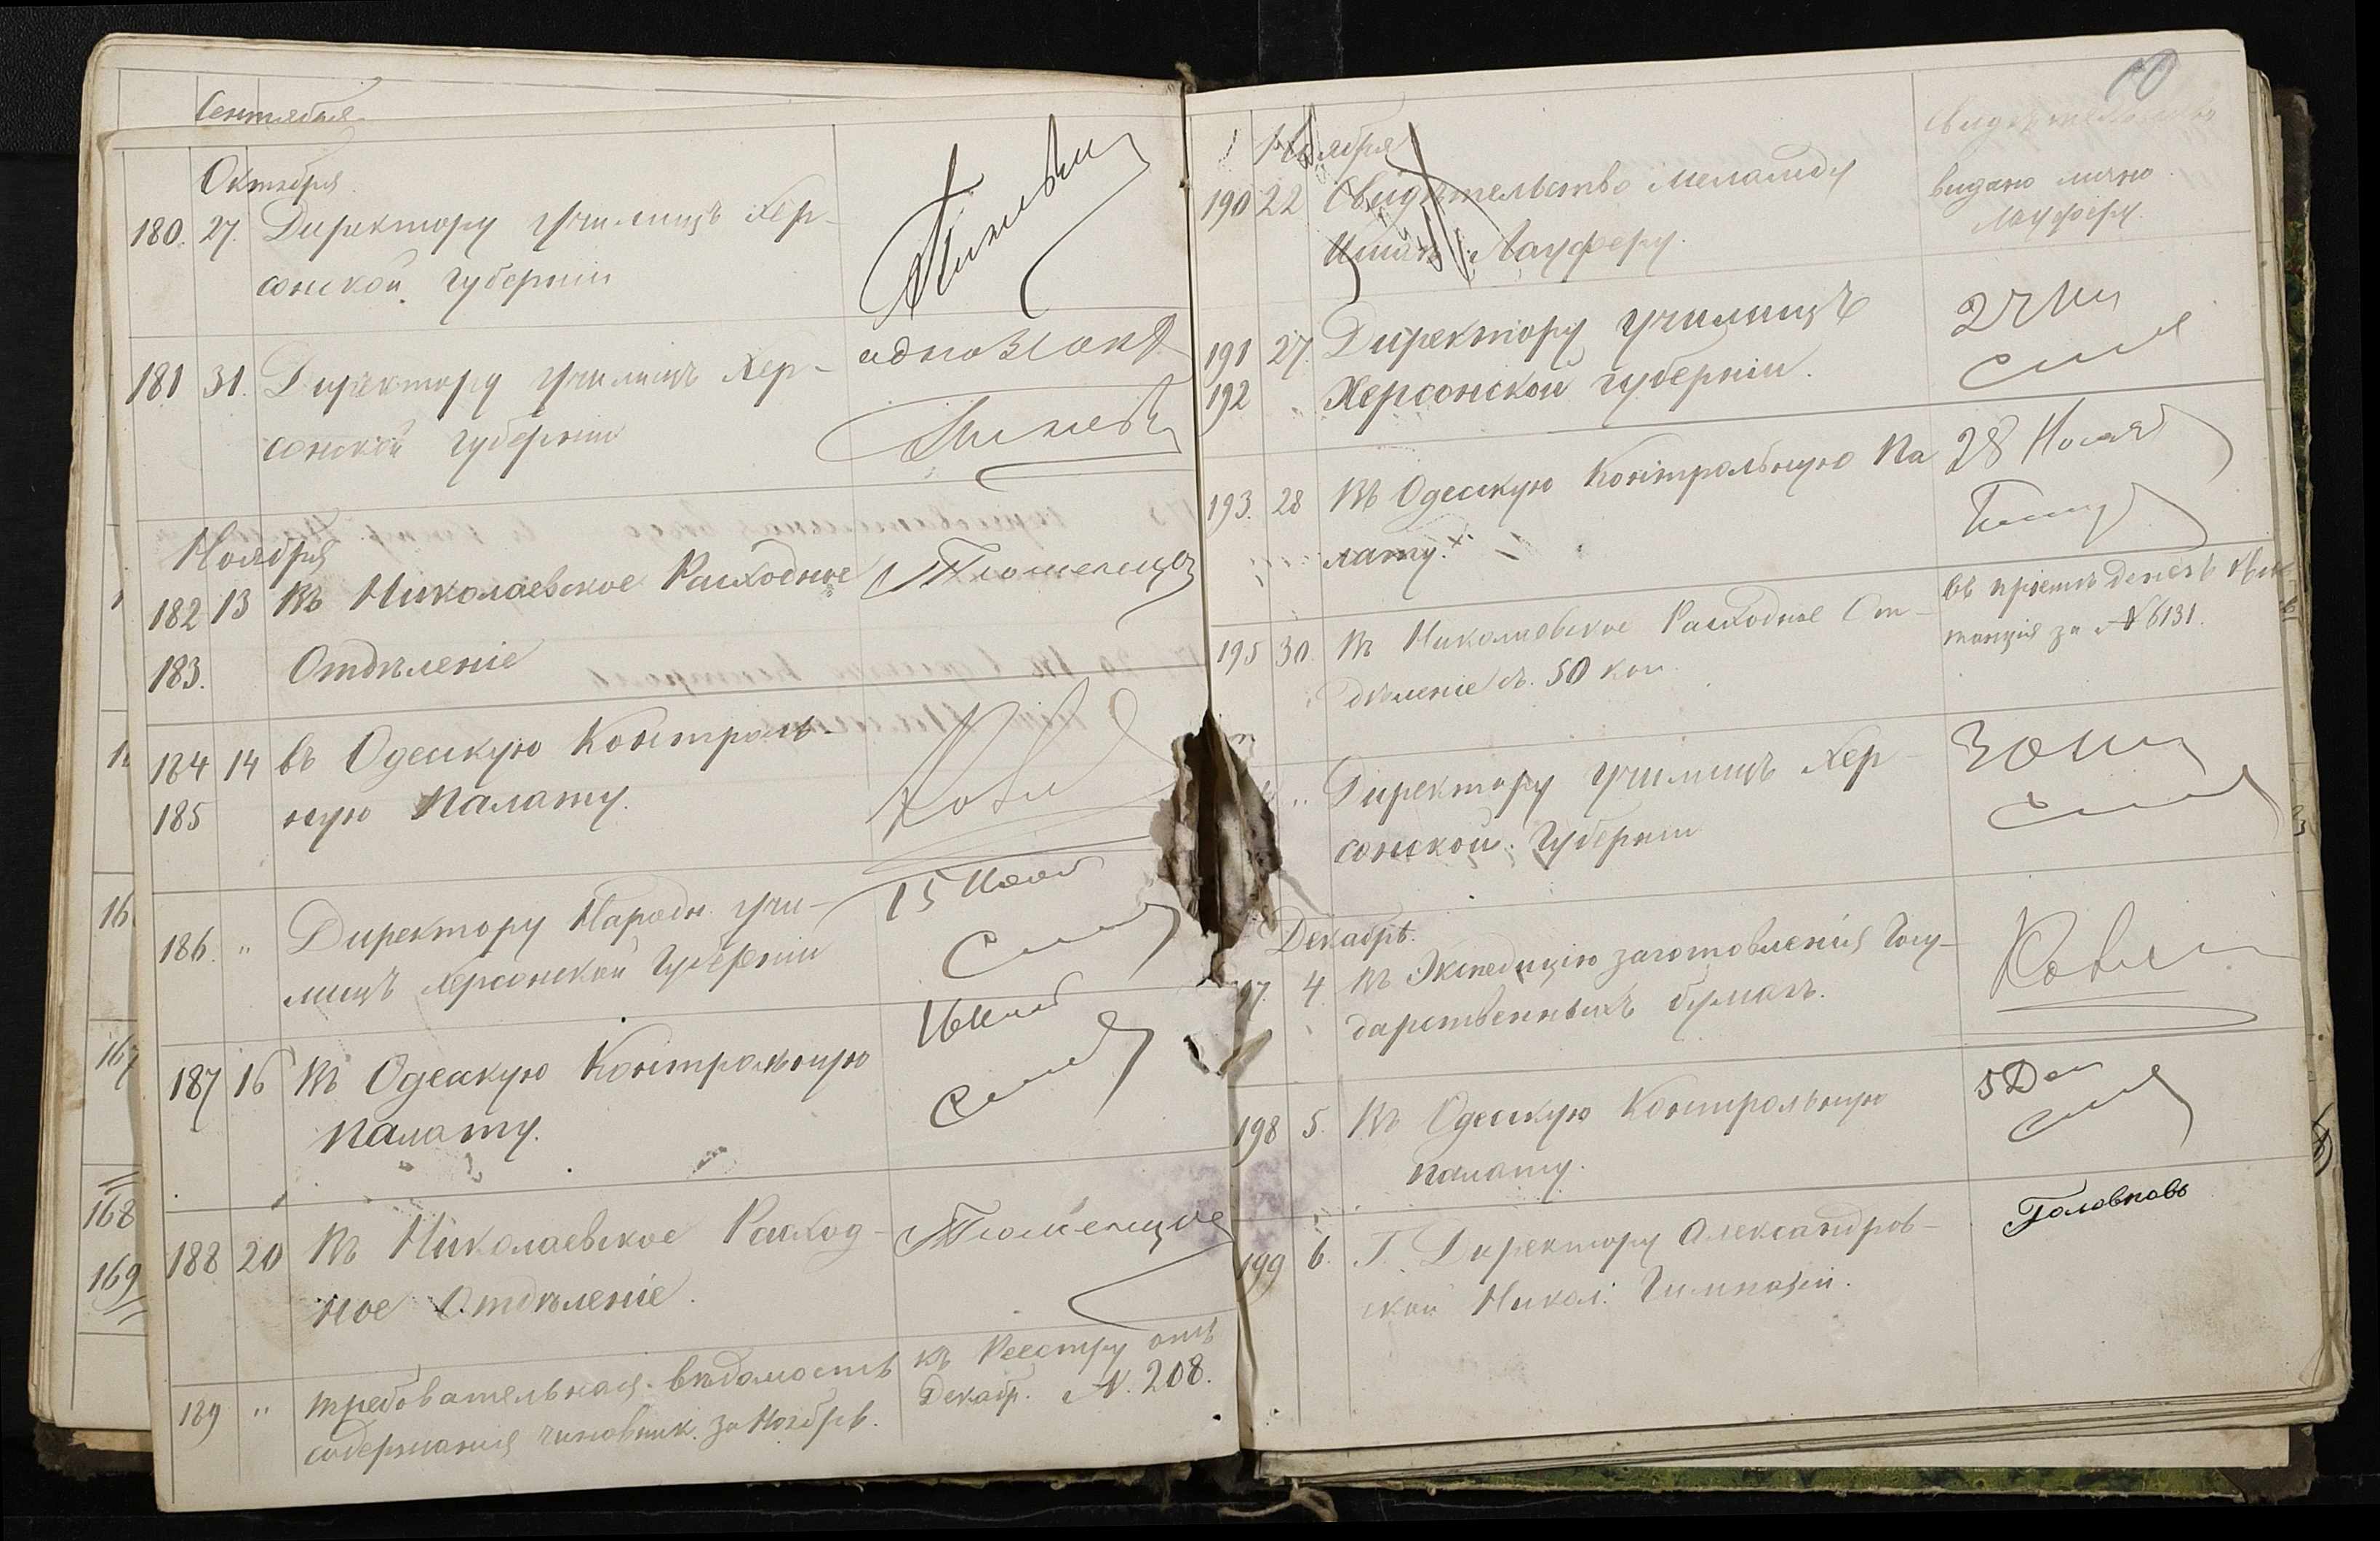 Сентября
Октября
180. 27. Директору училищъ Хер-
сонской Губерніи
181 31. Директору училищъ Хер-
сонской Губерніи
Ноября
182 13 Въ Николаевское Расходное
183. Отдѣленіе
184 14 въ Одесскую Контроль-
185 ную Палату.
186. " Директору Народн. учи-
лищъ Херсонской Губерніи
15 Нояб
187 16 Въ Одесскую Контрольную
Палату.
16 Нояб
188 20 Въ Николаевское Расход-
ное Отдѣленіе.
189 " требовательная вѣдомость
содержанія чиновник. за Ноябрь.
къ Реестру отъ
Декабр. №. 208.
167
168
169
10
Ноября
190 22 Свидѣтельство Меламиду
Лауферу.
видано лично
Лауферу.
191 27. Директору училищъ
192 " Херсонской губерніи.
27
193. 28 Въ Одесскую Контрольную Па
лату.
28 Нояб
195 30. Въ Николаевское Расходное От-
дѣленіе съ 50 коп.
Въ пріемѣ денегъ Кви-
танція за № 6131.
" Директору училищъ Хер
сонской Губерніи
30
Декабрь.
4. Въ Экспедицію заготовленія Госу-
дарственныхъ бумагъ.
198 5. Въ Одесскую Контрольную
палату.
5 Дек
199 6. Г. Директору Александров-
ской Никол. Гимназіи.
Головковъ